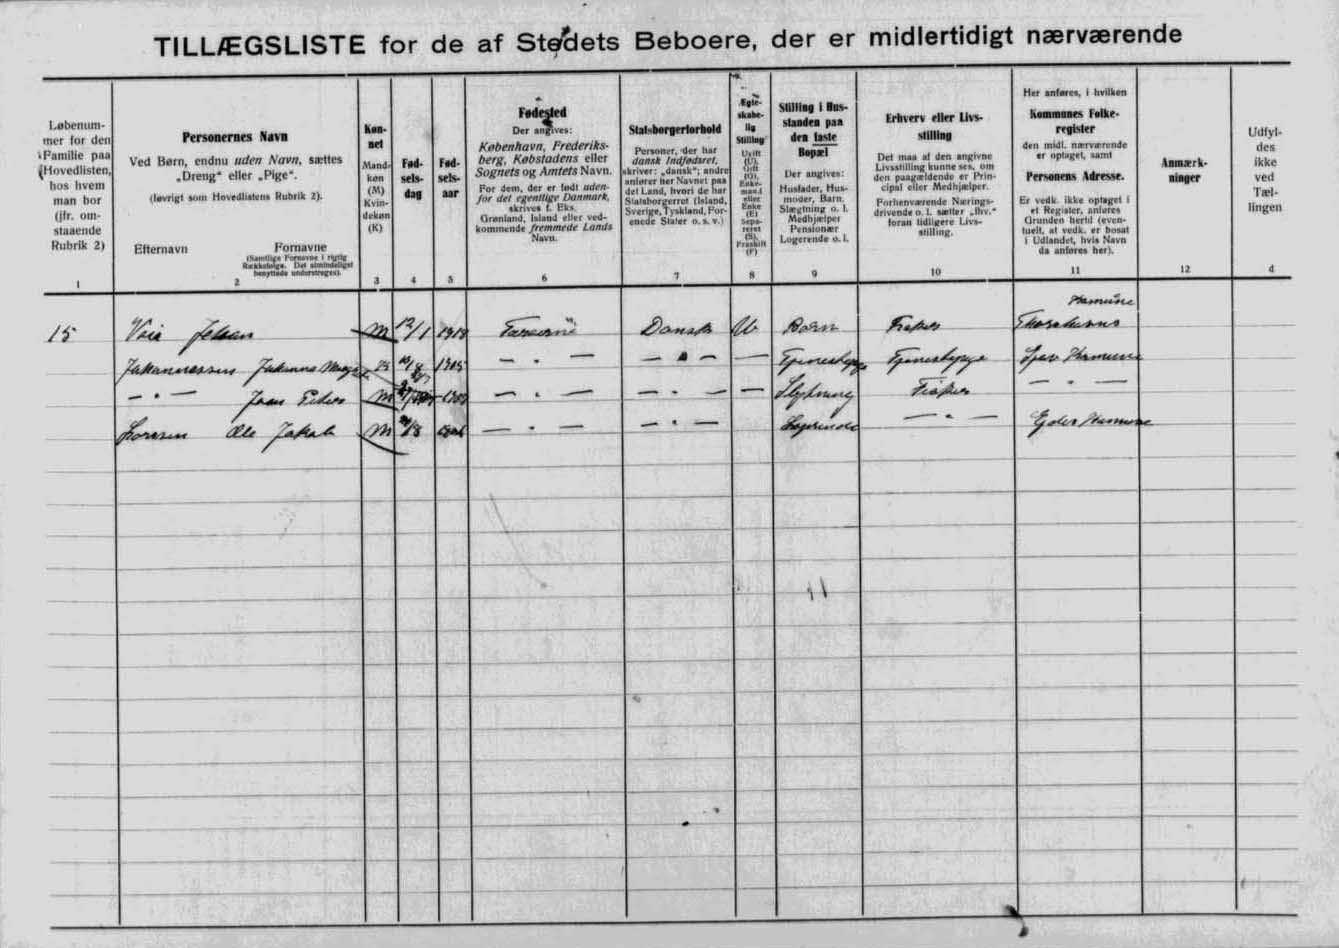 TILLÆGSLISTE for de af Stedets Beboere, der er midlertidigt nærværende
Løbenum-
mer for den
Familie paa
Hovedlisten,
hos hvem
man bor
(jfr. om-
staaende
Rubrik 2)
1
Personernes Navn
Ved Børn, endnu uden Navn, sættes
„Dreng“ eller „Pige“.
(Iøvrigt som Hovedlistens Rubrik 2).
Efternavn
Fornavne
(Samtlige Fornavne i rigtig
Rækkefølge. Det almindeligst
benyttede understreges).
2
Køn-
net
Mand-
køn
(M)
Kvin-
dekøn
(K)
3
Fød-
sels-
dag
4
Fød-
sels-
aar
5
Fødested
Der angives:
København, Frederiks-
berg, Købstadens eller
Sognets og Amtets Navn.
For dem, der er født uden-
for det egentlige Danmark,
skrives f. Eks.
Grønland, Island eller ved-
kommende fremmede Lands
Navn.
6
Statsborgerforhold
Personer, der har
dansk Indfødsret,
skriver: „dansk“; andre
anfører her Navnet paa
det Land, hvori de har
Statsborgerret (Island,
Sverige, Tyskland, For-
enede Stater o. s. v.)
7
Ægte-
skabe-
lig
Stilling
Ugift
(U),
Gift
(G),
Enke-
mand
eller
Enke
(E)
Sepa-
reret
(S),
Fraskilt
(F)
8
Stilling i Hus-
standen paa
den faste
Bopæl
Der angives:
Husfader, Hus-
moder, Barn,
Slægtning o. l.
Medhjælper
Pensionær
Logerende o. l.
9
Erhverv eller Livs-
stilling
Det maa af den angivne
Livsstilling kunne ses, om
den paagældende er Prin-
cipal eller Medhjælper.
Forhenværende Nærings-
drivende o. l. sætter „fhv.“
foran tidligere Livs-
stilling.
10
Her anføres, i hvilken
Kommunes Folke-
register
den midl. nærværende
er optaget, samt
Personens Adresse.
Er vedk. ikke optaget i
et Register, anføres
Grunden hertil (even-
tuelt, at vedk. er bosat
i Udlandet, hvis Navn
da anføres her).
11
Anmærk-
ninger
12
Udfyl-
des
ikke
ved
Tæl-
lingen
d
15 Johan M 12/1 Færøerne Dansk U Barn Fisker Thorshavns Kommune
M Jens Peter Fisker
Ole Jakob M Logerende Kommune